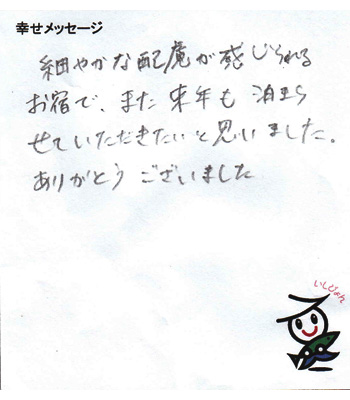 幸せメッセージ
細やかな配慮が感じられる
お宿で、また来年も泊まら
せていただきたいと思いました。
ありがとうございました
いしじょん